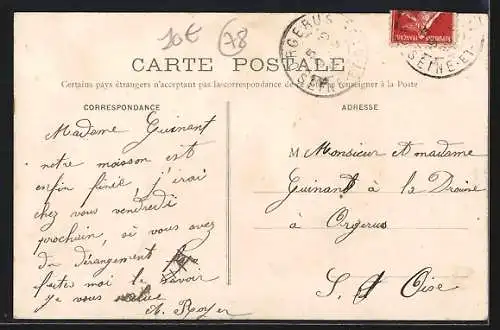 10€ 78
ORGERUS
SEINE-ET
SEINE-ET
CARTE POSTALE
Certains pays étrangers n'acceptent pas la correspondance de se renseigner à la Poste
CORRESPONDANCE
ADRESSE
Madame Guinant
notre moisson est
enfin finie, j'irai
chez vous vendredi
prochain, si vous avez
du dérangement
faites moi le savoir
Je vous salue
A. Royer
M Monsieur et madame
Guinant à la
Orgerus
S. et Oise